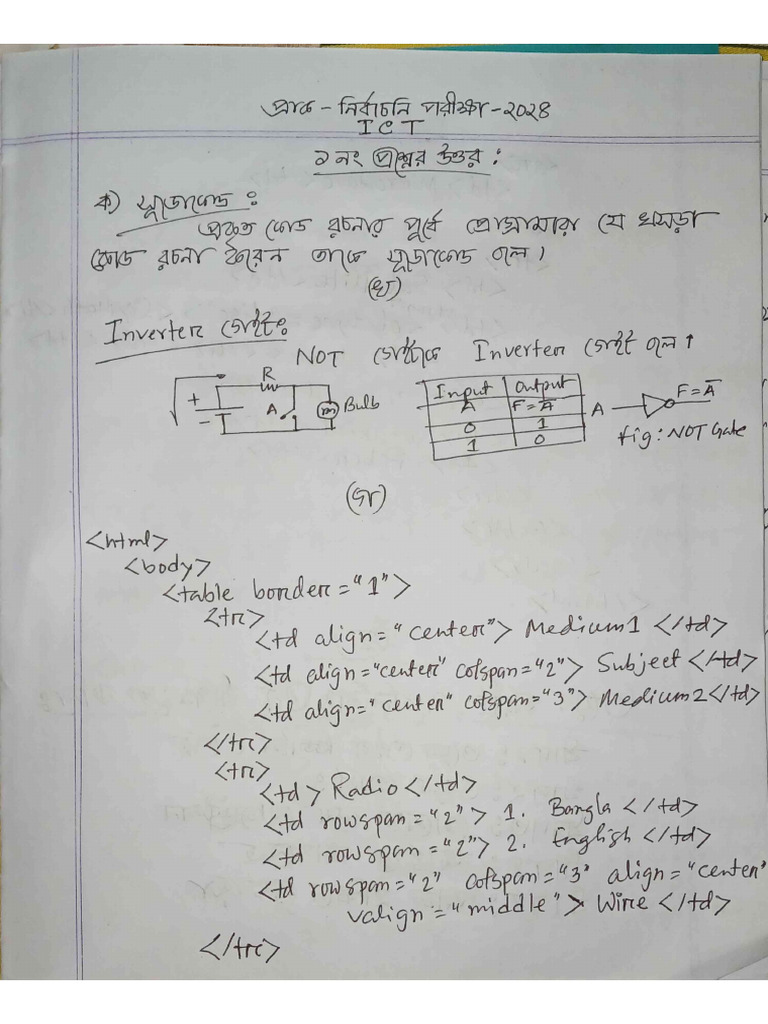 প্রাক - নির্বাচনি পরীক্ষা - ২০২৪
ICT
১ নং প্রশ্নের উত্তর :
ক) স্যুডোকোড :
প্রকৃত কোড রচনার পূর্বে প্রোগ্রামারা যে খসড়া
কোড রচনা করেন তাকে স্যুডোকোড বলে।
(খ)
Inverter গেইট:
NOT গেইটকে Inverter গেইট বলে।
R
+
-
A
m
Bulb
Input Output
A F = A̅
0 1
1 0
A
F = A̅
fig : NOT Gate
(গ)
<html>
<body>
<table border = "1">
<tr>
<td align = "center"> Medium1 </td>
<td align="center" colspan="2"> Subject </td>
<td align="center" colspan="3"> Medium2 </td>
</tr>
<tr>
<td> Radio </td>
<td rowspan = "2" > 1. Bangla </td>
<td rowspan = "2"> 2. English </td>
<td rowspan="2" colspan="3" align="center"
valign="middle"> Wire </td>
</tr>